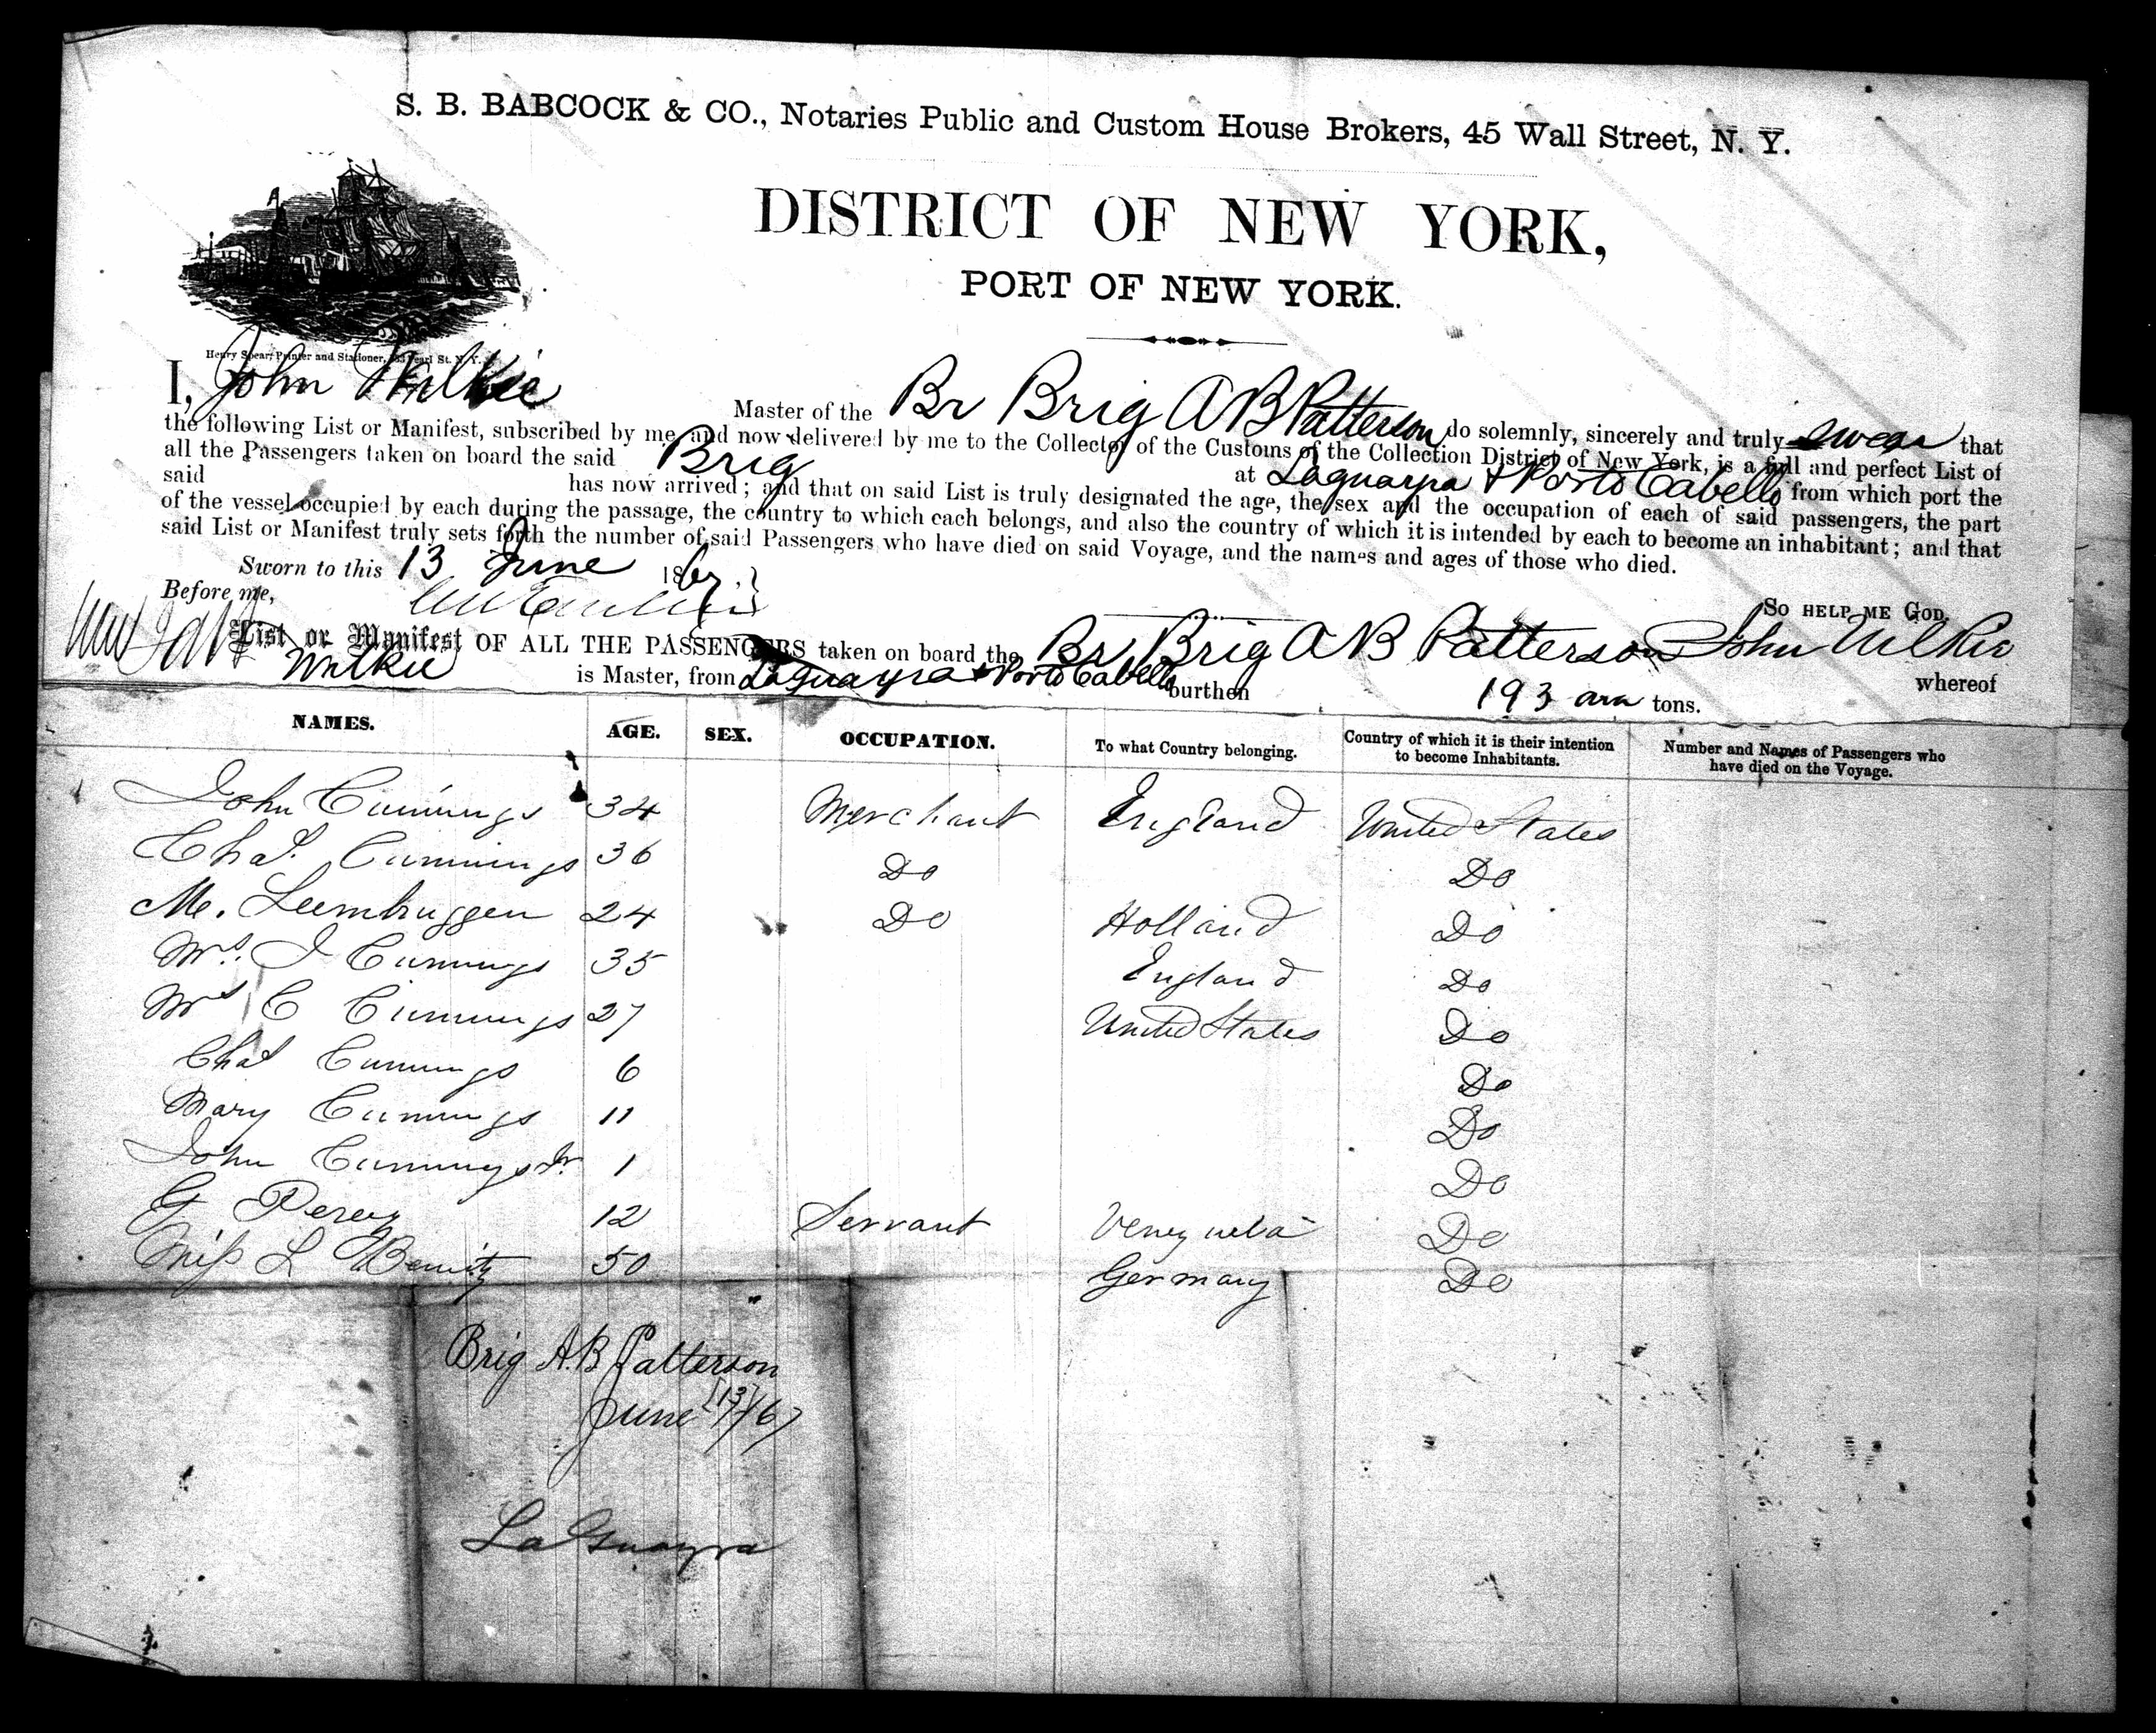 S. B. BABCOCK & CO., Notaries Public and Custom House Brokers, 45 Wall Street, N. Y.
DISTRICT OF NEW YORK,
PORT OF NEW YORK.
Henry Spear, Printer and Stationer, Pearl St. N. Y.
I, John Wilkie Master of the Br Brig A B Patterson do solemnly, sincerely and truly swear that
the following List or Manifest, subscribed by me, and now delivered by me to the Collector of the Customs of the Collection District of New York, is a full and perfect List of
all the Passengers taken on board the said Brig at Laguayra & Porto Cabello from which port the
said has now arrived; and that on said List is truly designated the age, the sex and the occupation of each of said passengers, the part
of the vessel occupied by each during the passage, the country to which each belongs, and also the country of which it is intended by each to become an inhabitant; and that
said List or Manifest truly sets forth the number of said Passengers who have died on said Voyage, and the names and ages of those who died.
Sworn to this 13 June 1867.
Before me,
SO HELP ME GOD,
John Wilkie
List or Manifest OF ALL THE PASSENGERS taken on board the Br Brig A B Patterson whereof
Wilkie is Master, from Laguayra & Porto Cabello burthen 193 tons.
NAMES. AGE. SEX. OCCUPATION. To what Country belonging. Country of which it is their intention to become Inhabitants. Number and Names of Passengers who have died on the Voyage.
John Cummings 34 Merchant England United States
Chas. Cummings 36 Do Do
M. Leembruggen 24 Do Holland Do
Mrs. J Cummings 35 England Do
Mrs C Cummings 27 United States Do
Chas Cummings 6 Do
Mary Cummings 11 Do
John Cummings Jr. 1 Do
G Perey 12 Servant Venezuela Do
Miss L 50 Germany Do
Brig A.B Patterson
June 13/67
La Guayra